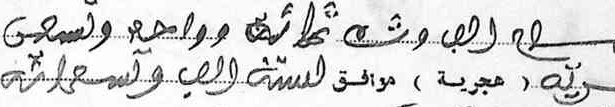 الف وثلاثمائة وواحد وتسعين
( هجرية ) موافق لسنة الف وتسعمائة